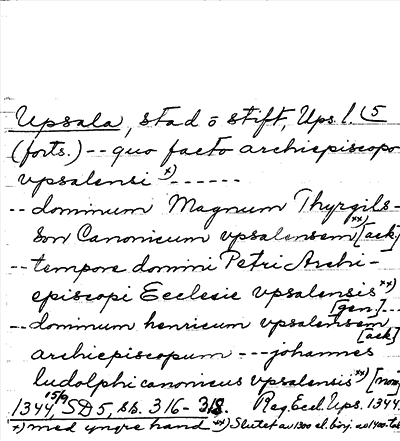 Upsala, stad o stift, Ups l. (5
(forts.) -- quo facto archiepiscopo
vpsalensi x) ------
-- dominum Magnum Thyrgils-
son Canonicum vpsalensem xx) [ack]
-- tempore domini Petri Archi-
episcopi Ecclesie vpsalensis xx)
[gen] --
-- dominum henricum vpsalensem
[ack]
archiepiscopum --- johannes
ludolphi canonicus vpsalensis xx) [nom]
1344 15/9, SD 5, ss. 316-318. Reg. Eccl. Ups. 1344
x) med yngre hand xx) Slutet av 1300 el. börj. av 1400-tal